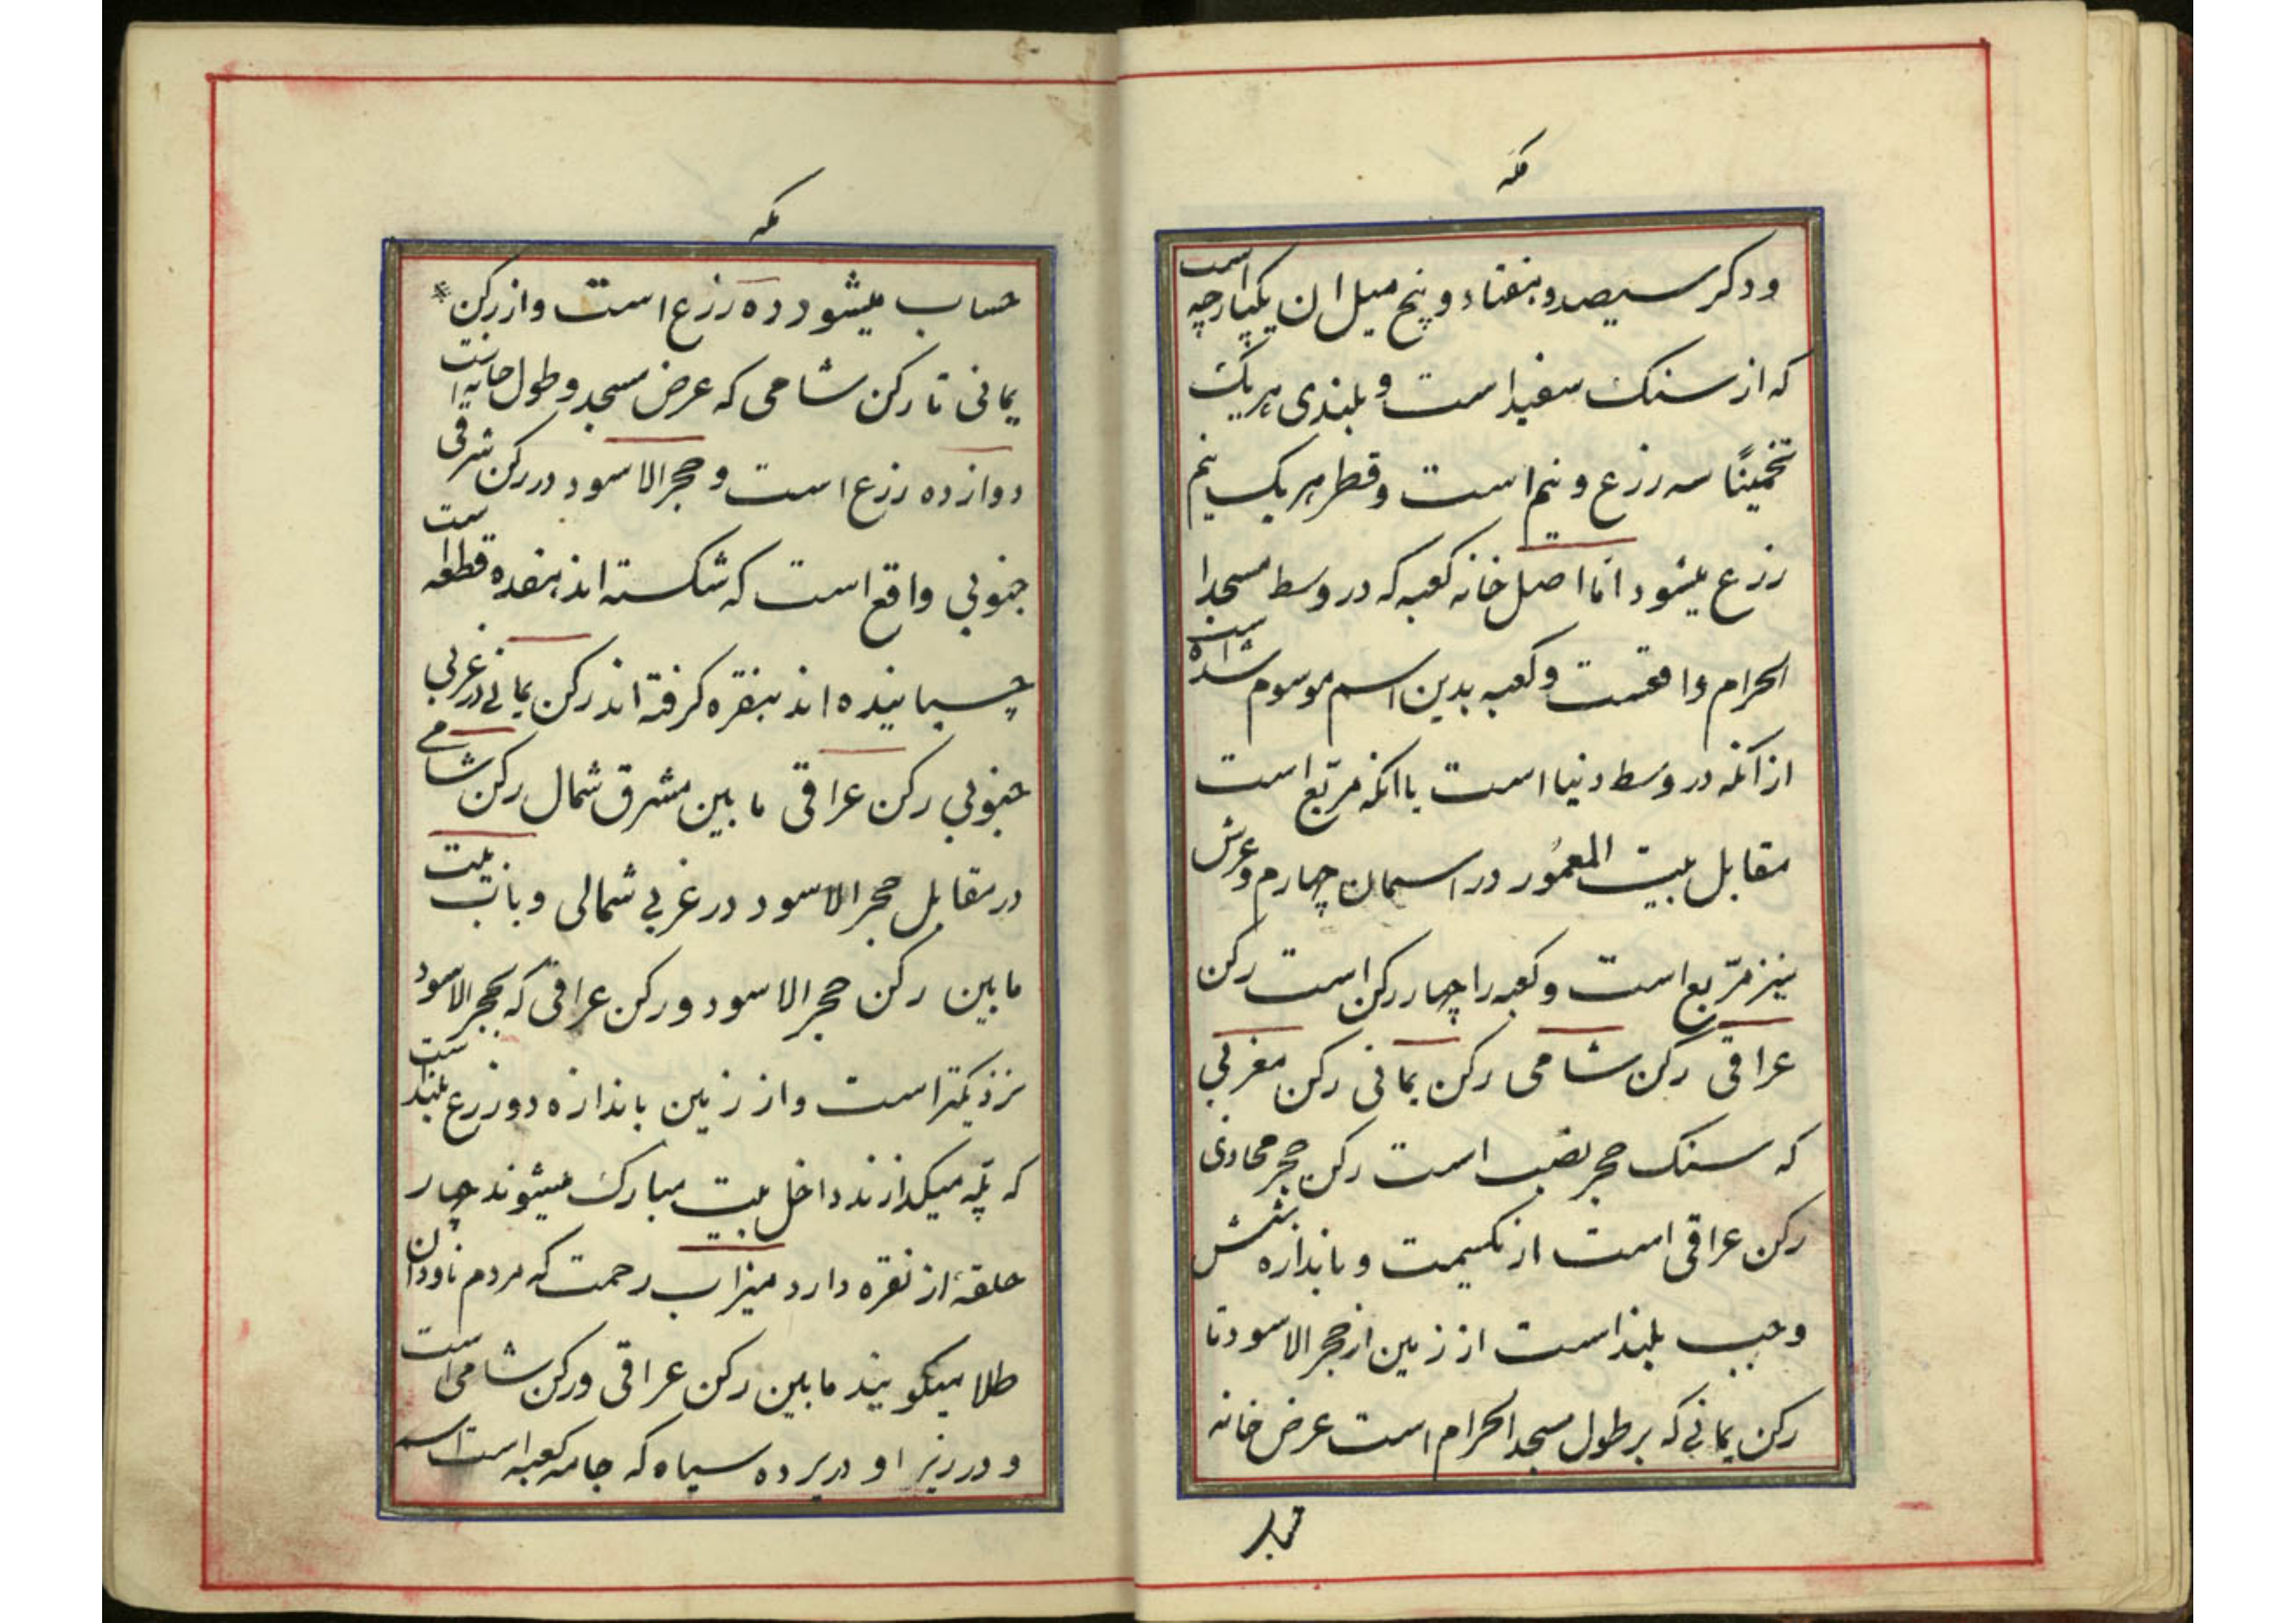 مکه
ودکر سیصد و هفتاد و پنج میل ان یکپارچه است
که از سنک سفید است و بلندی هر یک
تخمینًا سه رزع و نیم است و قطر هر یک نیم
رزع میشود امّا اصل خانه کعبه که در وسط مسجد ا
لحرام واقعست و کعبه بدین اسم موسوم شده است
از آنکه در وسط دنیا است با انکه مرّبع است
مقابل بیت المعمُور در اسمان چهارم و عرش
نیز مرّبع است و کعبه را چهار رکن است رکن
عراقی رکن شامی رکن یمانی رکن مغربی
که سنک حجر نصب است رکن حجر محاذی
رکن عراقی است از یکسمت و باندازه شش
وجب بلند است از زمین از حجر الاسود تا
رکن یمانی که بر طول مسجد الحرام است عرض خانه
مکه
حساب میشود ده رزع است و از رکن
یمانی تا رکن شامی که عرض مسجد و طول خانه است
دوازده رزع است و حجر الاسود در رکن شرقی
جنوبی واقع است که شکسته اند هفده قطعه است
چسبانیده اند بنقره کرفته اند رکن یمانی در غربی
جنوبی رکن عراقی ما بین مشرق شمال رکن شامی
در مقابل حجر الاسود در غربی شمالی و باب بیت
ما بین رکن حجر الاسود و رکن عراقی که بحجر الاسود
نزدیکتر است و از زمین باندازه دو زرع بلند است
که پلّه میکذارند داخل بیت مبارک میشوند چهار
حلقهٔ از نقره دارد میزاب رحمت که مردم ناودان
طلا میکویند ما بین رکن عراقی و رکن شامی است
و در زیر او در پرده سیاه که جامه کعبه است اسم